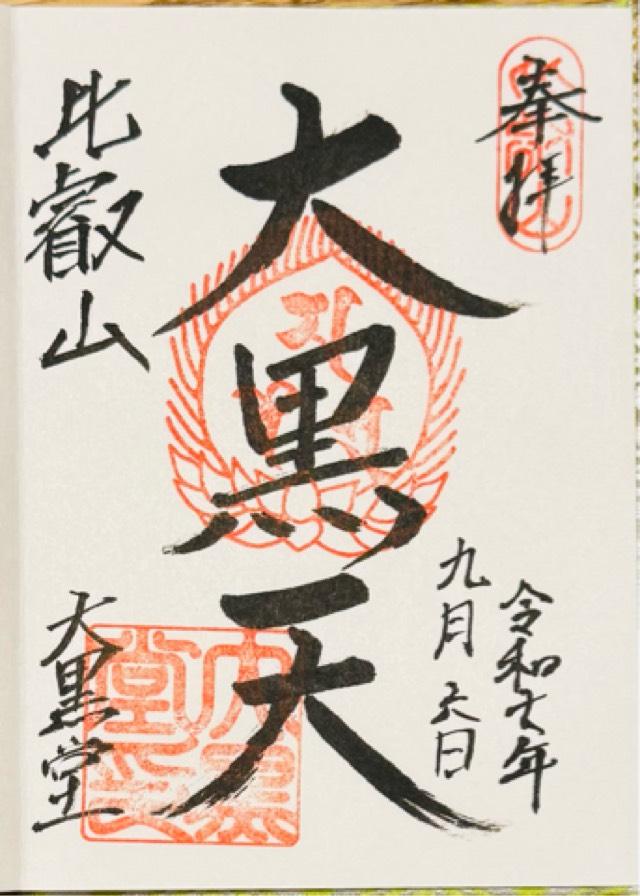 奉拝
令和七年
九月六日
大黒天
比叡山
大黒堂